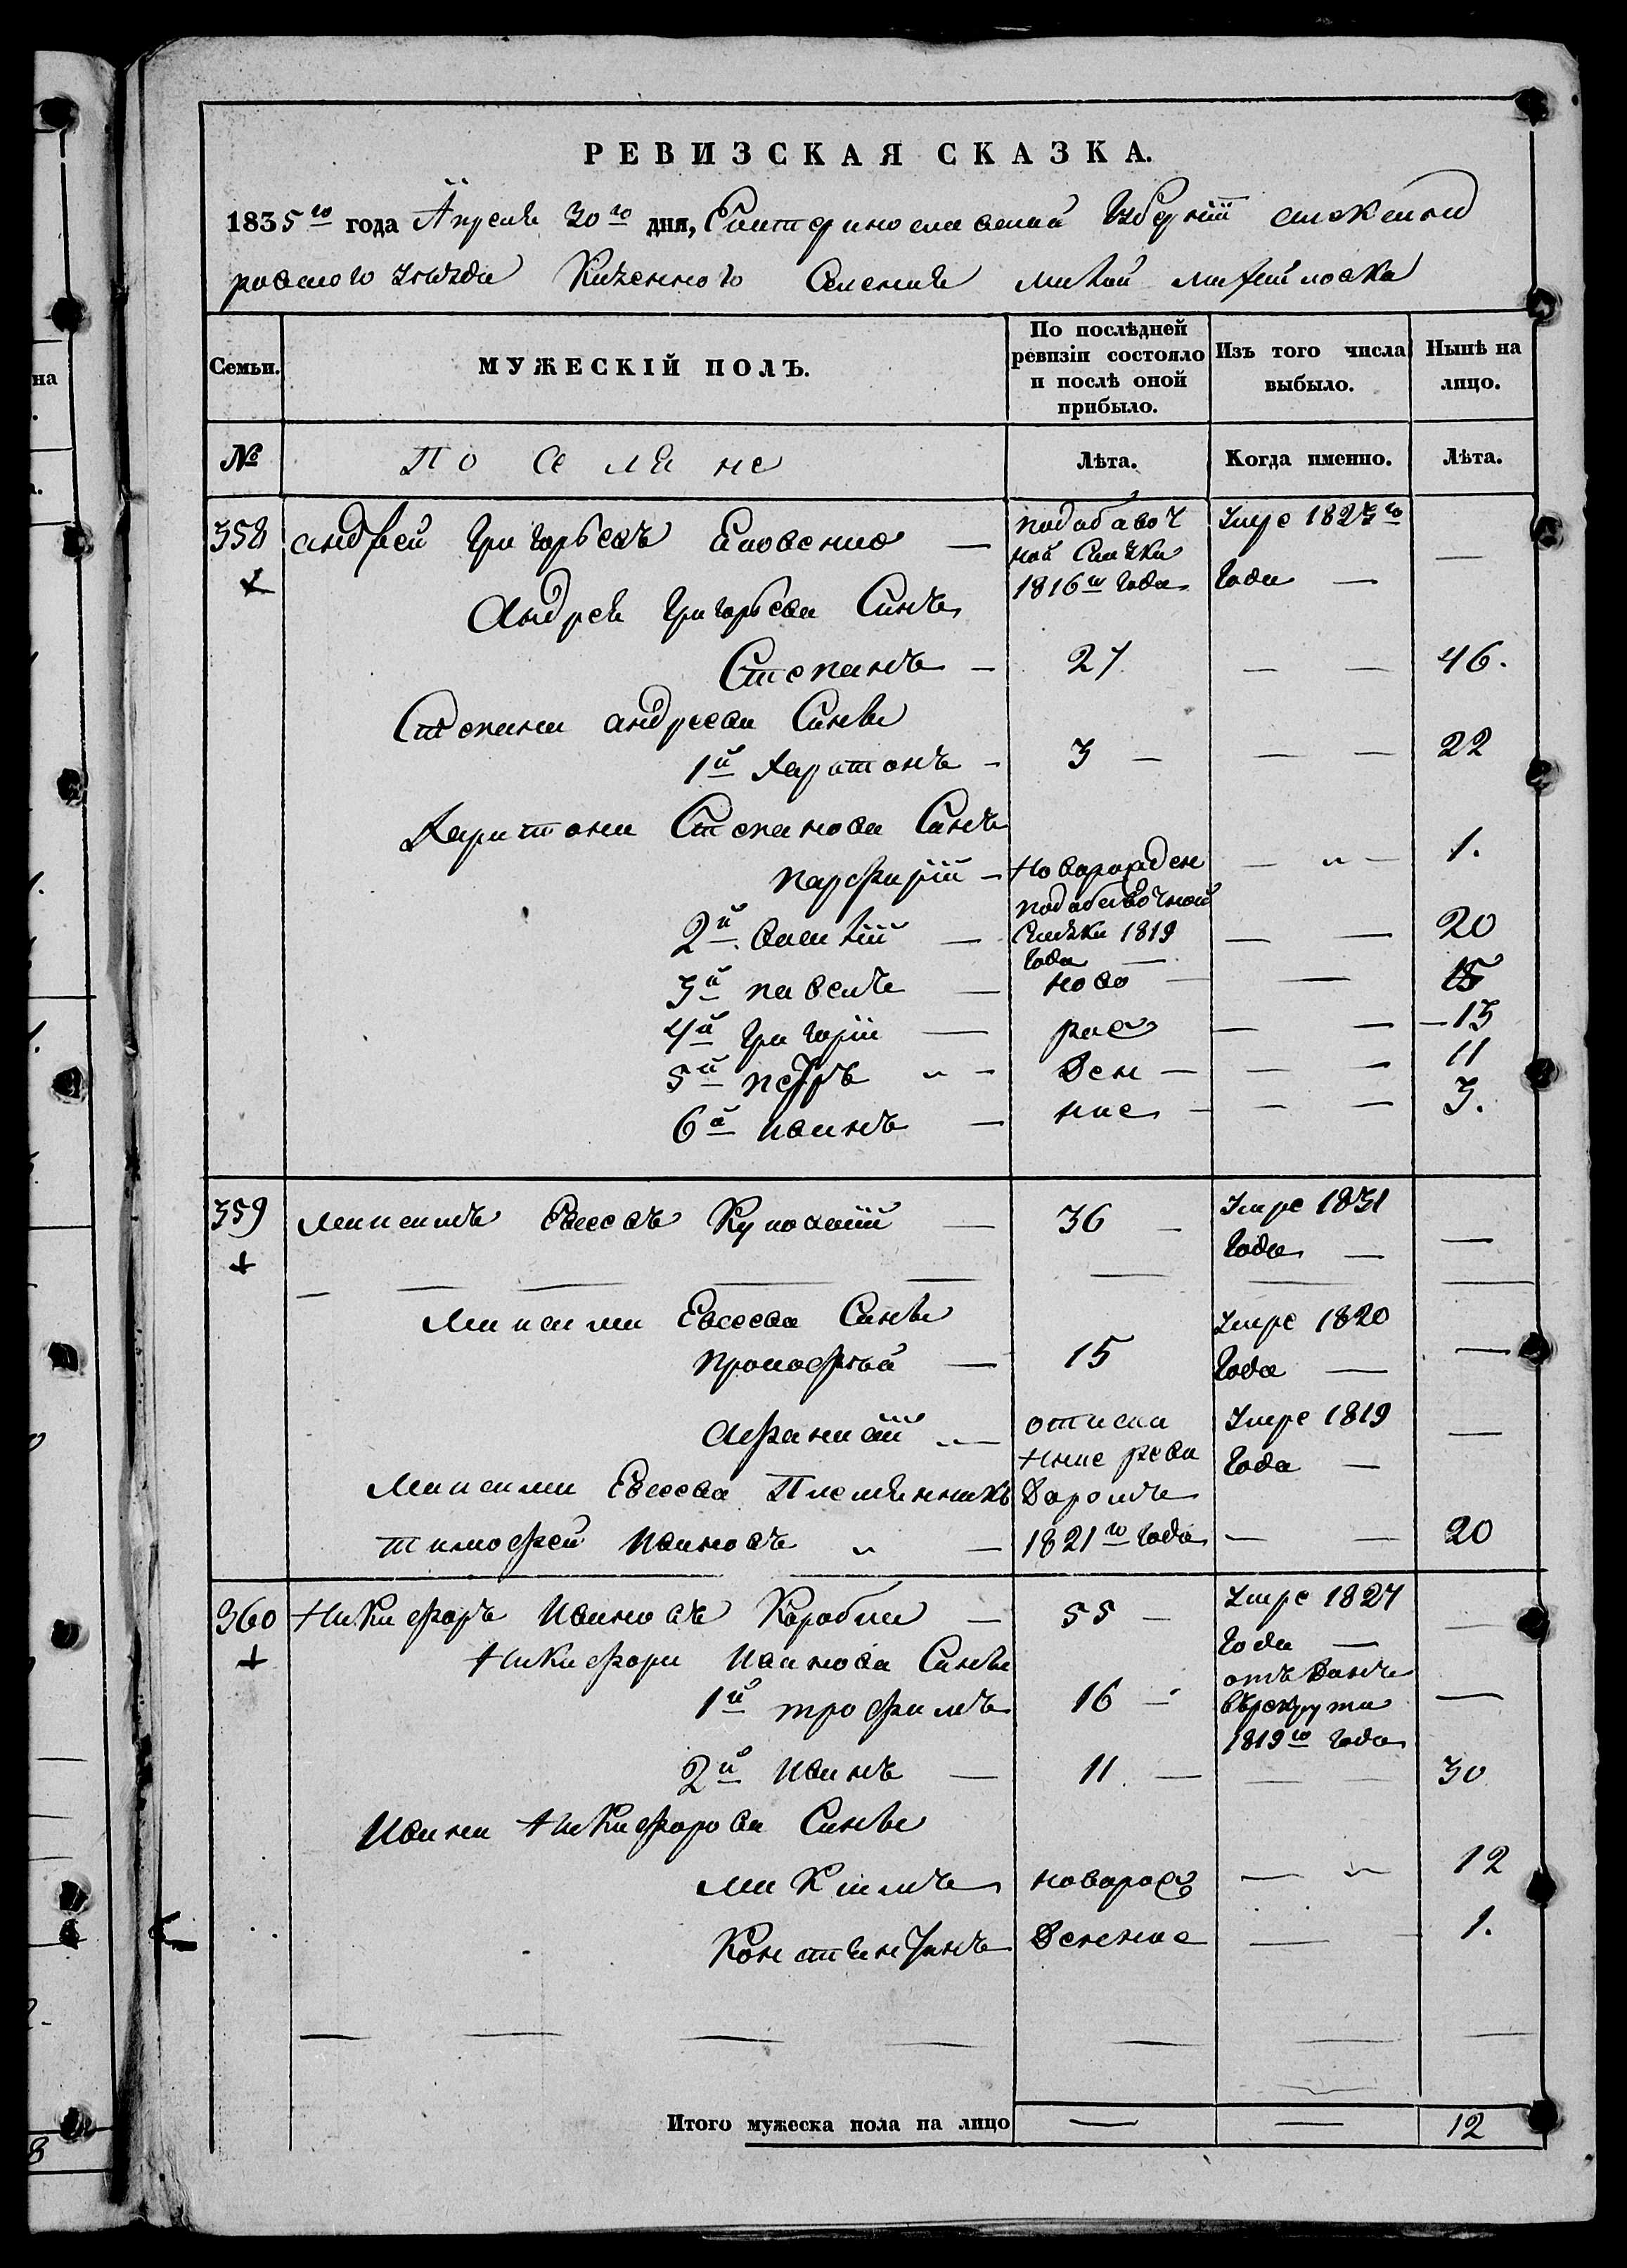 РЕВИЗСКАЯ СКАЗКА.
1835го года Апреля 30го дня, Екатеринославской Губернiи Александ
ровского уезда Казенного Селения Малой Михайловки
Семьи.
МУЖЕСКІЙ ПОЛЪ.
По послѣдней ревизіи состояло и послѣ оной прибыло.
Изъ того числа выбыло.
Нынѣ на лицо.
№
Поселяне
Лѣта.
Когда именно.
Лѣта.
358 Андрей Григорьевъ — подобавоч ной Скаски 1816го года Умре 1827го года — —
Андрея Григорьева Синъ
Степанъ — 27 — — 46.
Степана Андреева Сины
1й Харитонъ — 3 — — — 22
Харитона Степанова Синъ
Парфирiй — Новорожден — „ — 1.
2й Василiй — подобавочной Скаски 1819 года — — — 20
3й Павелъ — ново — — 15
4й Григорiй — рож — — — 13
5й Петръ „ — ден — — — 11
6й Иванъ — ные — — — 3.
359 Максимъ Евсеевъ — 36 — Умре 1831 года — —
Максима Евсеева Сины
Прокофый — 15 Умре 1820 года — —
Афанасiй „ — Умре 1819 года — —
Максима Евсеева Племянникъ
Тимофей Ивановъ „ — 1821го года — — 20
360 Никифоръ Ивановъ — 55 — Умре 1827 года — —
Никифора Иванова Сины
1й Трофимъ 16 — отъданъ върекруты 1819го года —
2й Иванъ — 11. — — — 30
Ивана Никифорова Сины
новорож — „ 12
Константинъ денные — — 1.
Итого мужеска пола на лицо — — 12